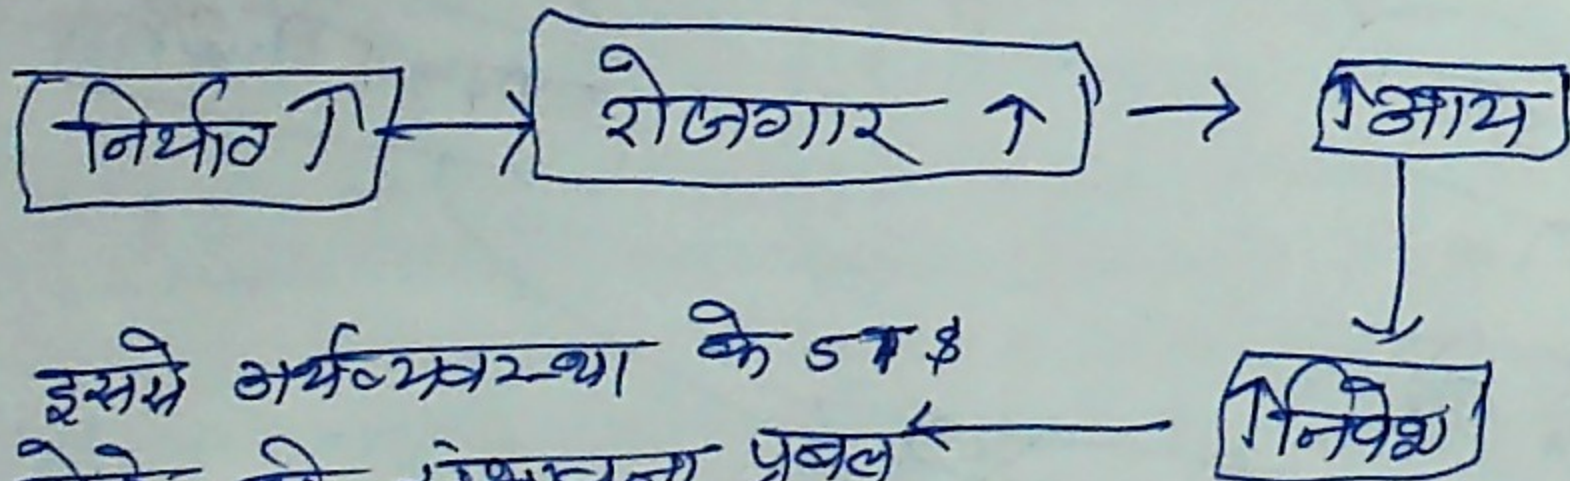 निर्यात ↑ → रोजगार ↑ → ↑आय
↑निवेश
इससे अर्थव्यवस्था के 5T $
होने की संभावना प्रबल